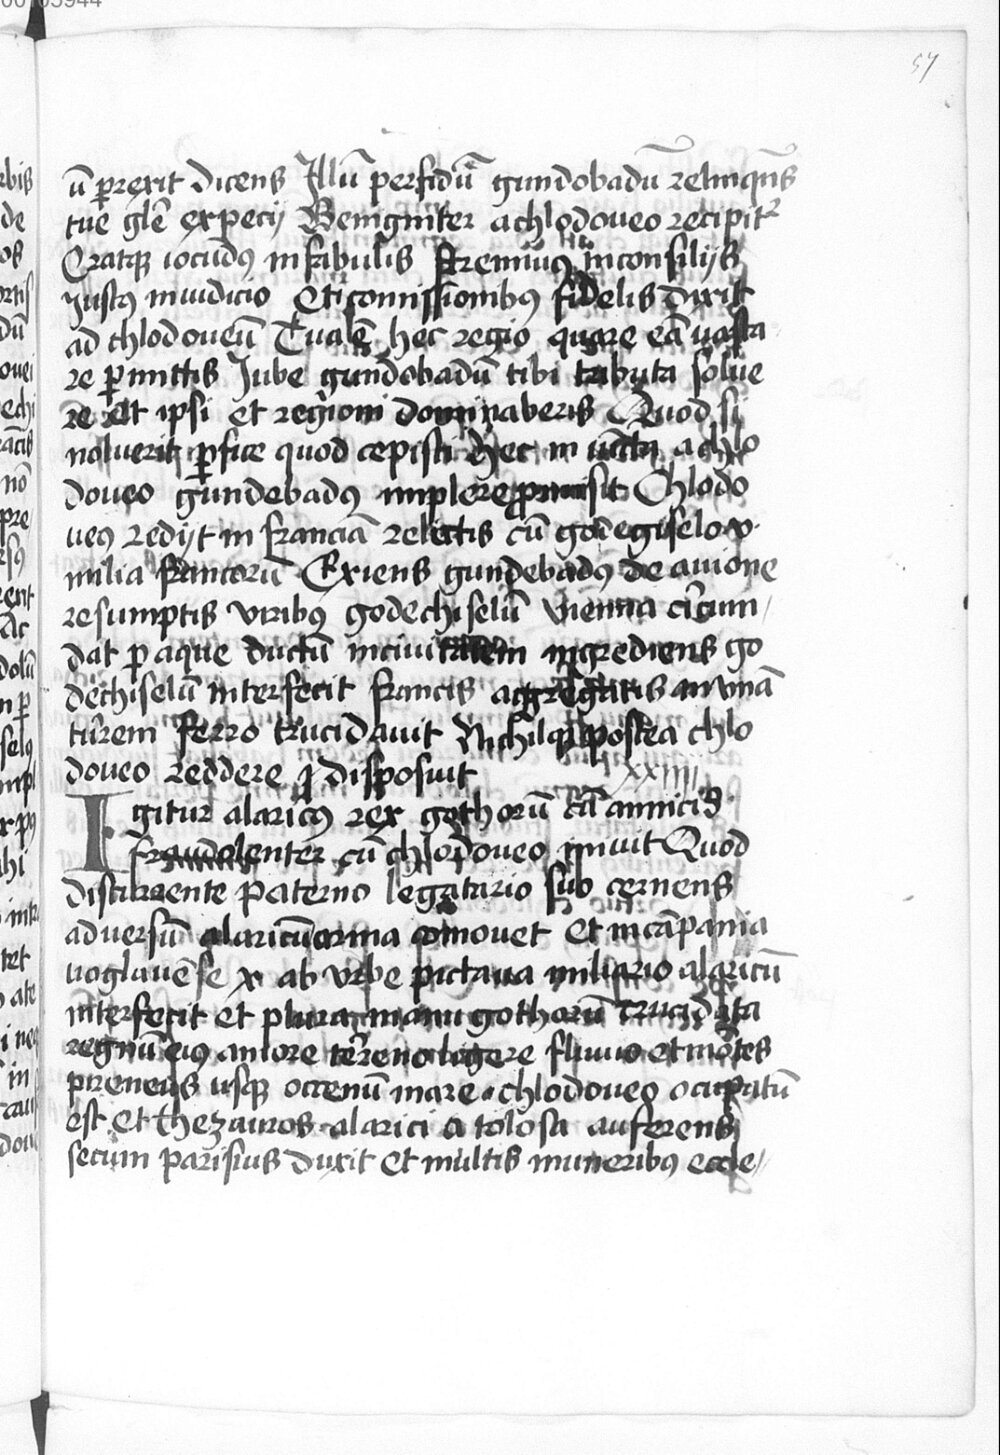 57
ū ꝑrexit dicens Illū perfidū gundobadū relinqūs
tue gl̄e expecij Benigniter a chlodoveo recipitr
Eratqꝫ iocūdꝰ in fabulis strenuuꝰ in consilijs
Justꝰ in iudicio Et i comissionibꝰ fidelis Dixit
ad chlodoveū Tua ē hec regio quare eā vasta
re ꝑmittis Jube gundobadū tibi tributa solue
re et ipsi et regioni dominaberis Quod si
noluerit ꝑfice quod cepisti Hec in a chlo
doveo gundebadꝰ implere promisit Chlodo
ueꝰ redijt in franciā relictis cū godegiselo v.
milia francorū Exiens gundebadꝰ de auione
resumptis viribꝰ godechiselū vienna circum
dat ꝑ aque ductū in ciuitatem ingrediens go
dechiselū interfecit francis aggregatis in vnā
turrem ferro trucidauit Nichilqꝫ postea chlo
doveo reddere disposuit
xxiiij
Igitur alaricꝰ rex gothorū cā amiciciē
fraudolenter cū chlodoveo iniuit Quod
discurrente paterno legatario sub cernens
adversū alaricū arma comouet Et in cāpania
uoglauēse x ab vrbe pictaua miliario alaricū
interfecit et plura manu gothorū trucidata
regnū eiꝰ a ligere fluuio et mōtes
pireneus usqꝫ occenū mare a chlodoveo ocupatū
est Et thezauros alarici a tolosa auferens
secum parisius duxit Et multis muneribꝰ eccle